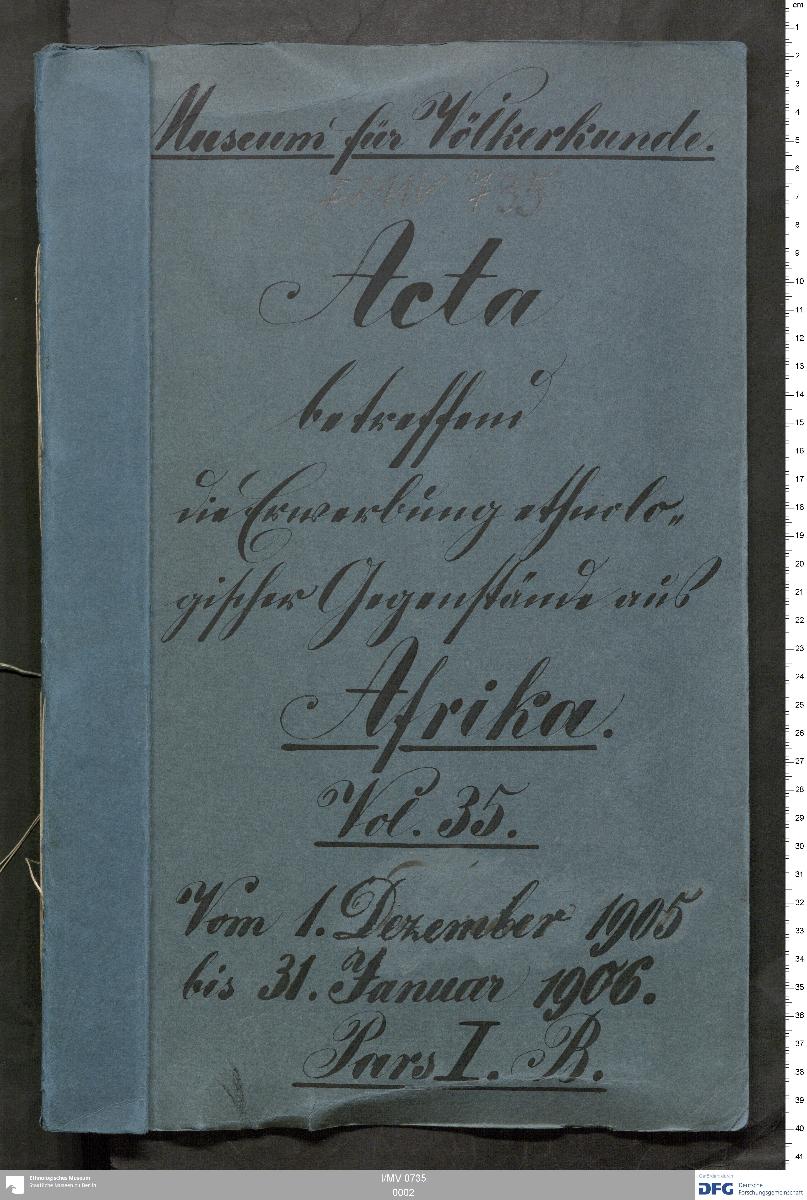 Museum für Völkerkunde.
I/MV 735
Acta
betreffend
die Erwerbung ethnolo„
gischer Gegenstände aus
Afrika.
Vol. 35.
Vom 1. Dezember 1905
bis 31. Januar 1906.
Pars I. B.
cm
1
2
3
4
5
6
7
8
9
10
11
12
13
14
15
16
17
18
19
20
21
22
23
24
25
26
27
28
29
30
31
32
33
34
35
36
37
38
39
40
41
Ethnologisches Museum
Staatliche Museen zu Berlin
I/MV 0735
0002
Gefördert durch
DFG Deutsche
Forschungsgemeinschaft